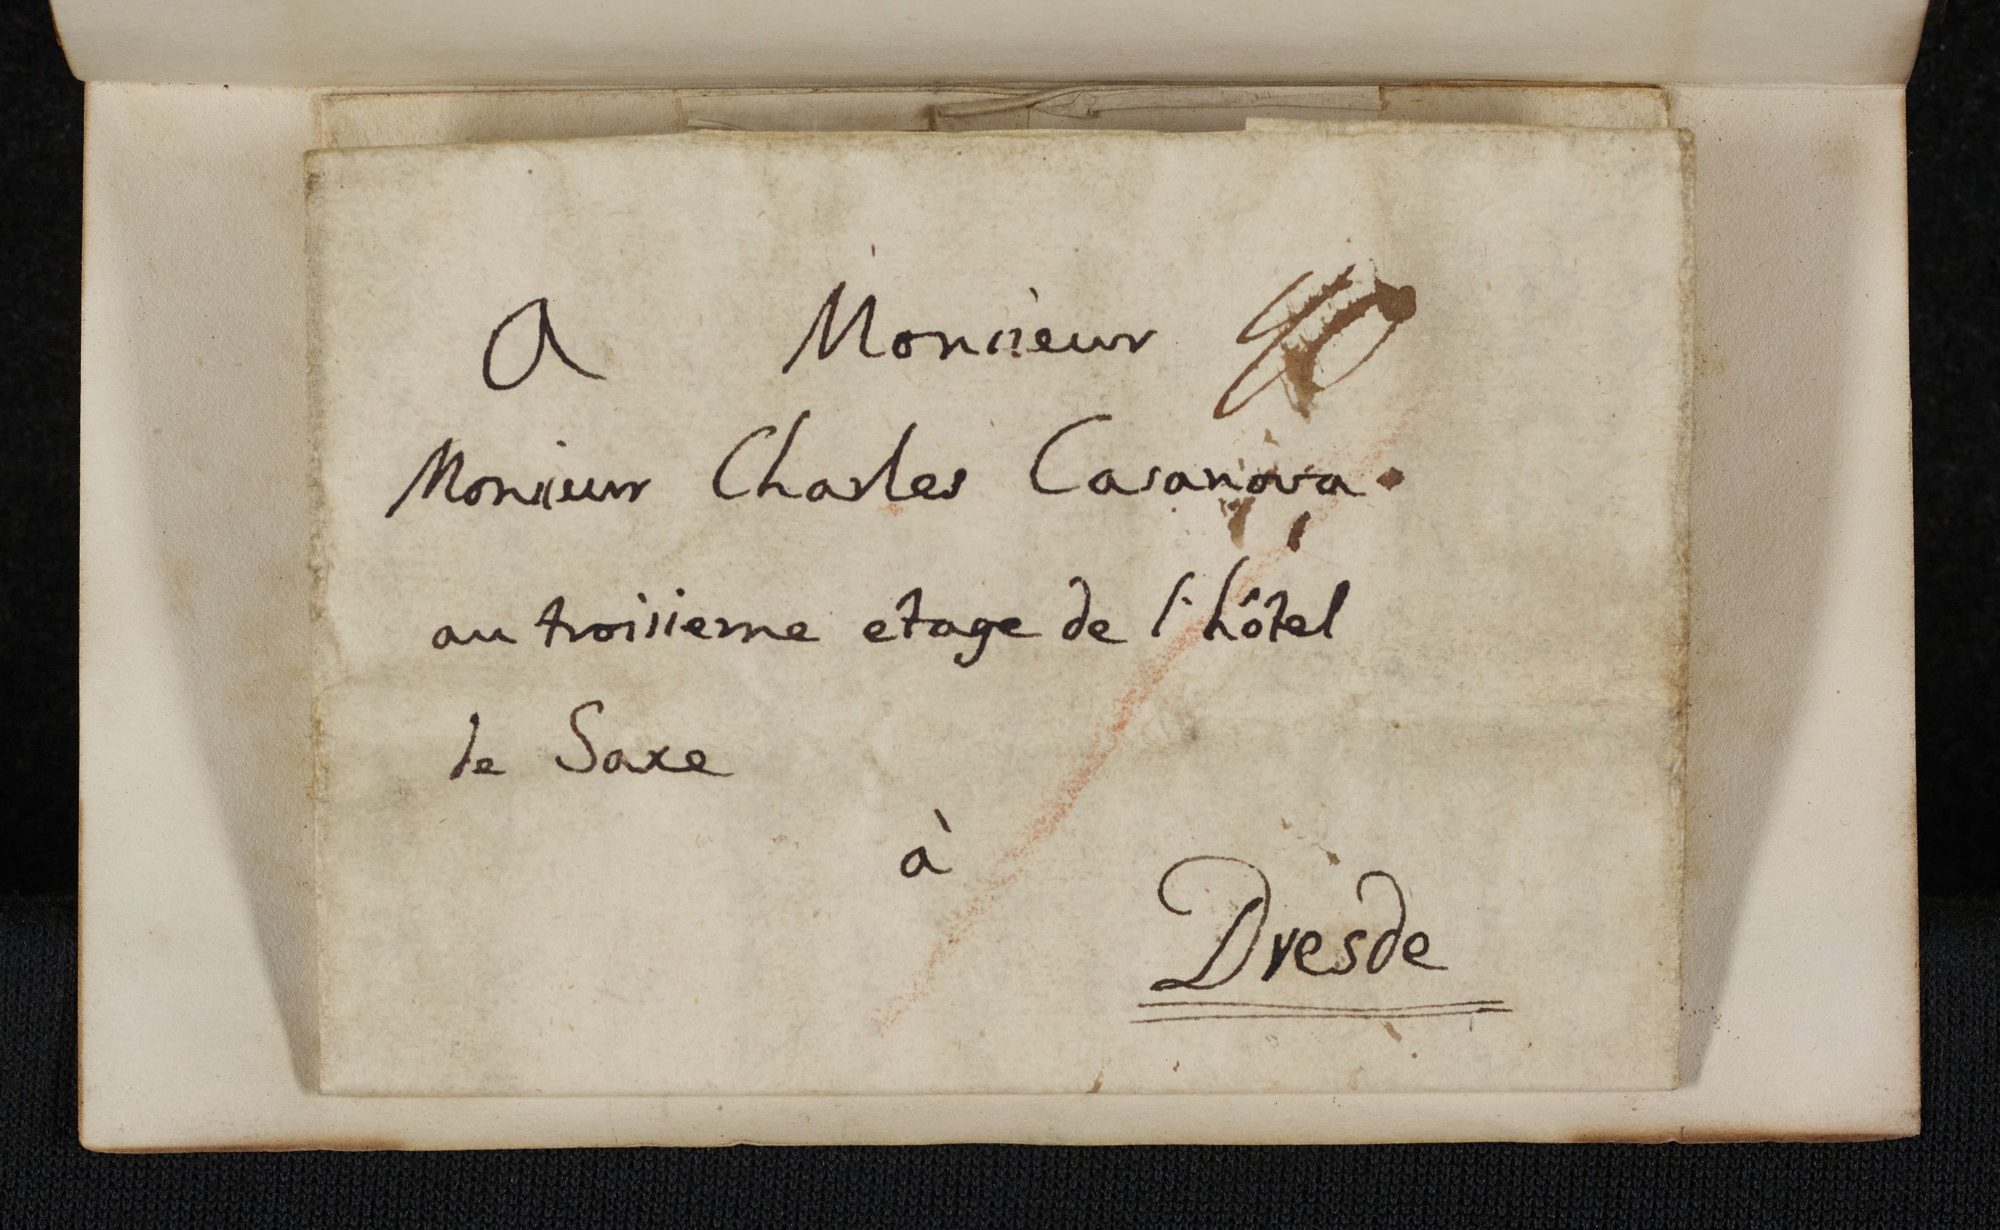 A Monsieur
Monsieur Charles Casanova.
au troisieme etage de l'hôtel
de Saxe
à
Dresde